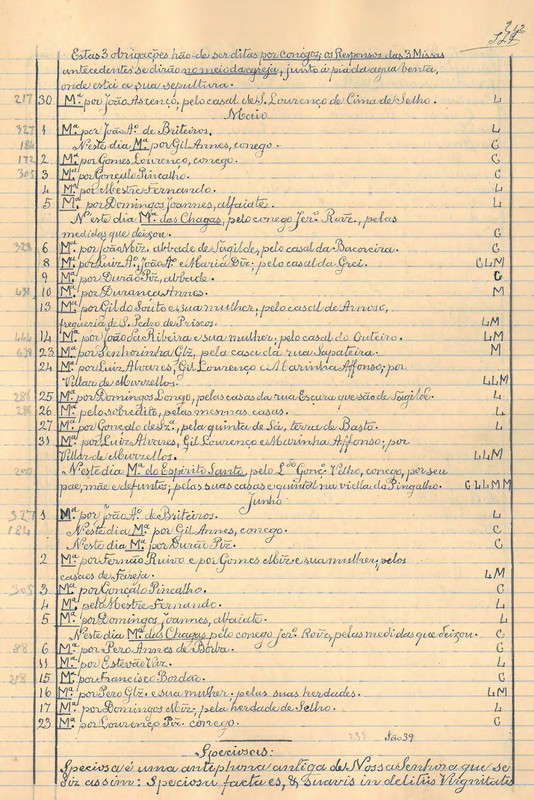 Estas 3 obrigações hão de ser ditas por conigos; os Responsos das 3 Missas
antecedentes se dirão no meio da egreja, junto á pia da agua benta,
onde está a sua sepultura.
217 30 Mª. por João Ascenço, pelo casal de S. Lourenço de Cima de Selho. L
Maio
327 1 Mª. por João Aº. de Briteiros. L
184 Neste dia Mª. por Gil Annes, conego. C
172 2 Mª. por Gomes Lourenço, conego. C
305 3 Mª. por Gonçalo Pincalho. C
4 Mª. por Mestre Fernando. L
5 Mª. por Domingos Joannes, alfaiate. L
N'este dia Mª. das Chagas, pelo conego Jerº. Roiz., pelas
medidas que deixou. C
6 Mª. por João Miz. abbade de Tagilde, pelo casal da Bacoreira. C
8 Mª. por Luiz Aº., João Aº. e Maria Diz; pelo casal da Grei. CLM
9 Mª. por Durão Piz, abbade. C
431 10 Mª. por Duranca Annes. M
13 Mª. por Gil do Souto e sua mulher, pelo casal de Arnoso,
freguezia de S. Pedro de Priscos. LM
14 Mª. por João da Ribeira e sua mulher; pelo casal do Outeiro. LM
23 Mª. por Senhorinha Glz, pela casa da rua Sapateira. M
24 Mª. por Luiz Alvares, Gil Lourenço e Marinha Affonso; por
Villar de Murzellos. LLM
286 25 Mª. por Domingos Longo, pelas casas da rua Escura que são de Tagilde. L
286 26 Mª. pelo sobredito, pelas mesmas casas. L
27 Mª. por Gonçalo de pela quinta de Sá, terra de Basto. L
31 Mª. por Luiz Alvares, Gil Lourenço e Marinha Affonso; por
Villar de Murzellos. LLM
Neste dia Mª. do Espirito Santo, pelo Gonçº. Velho, conego, por seu
pae, mãe e defuntos; pelas suas casas e quintal na viella do Pingalho. CLLMM
Junho
327 1 Mª. por João Aº. de Briteiros. L
184 Neste dia Mª. por Gil Annes, conego. C
Neste dia Mª. por Durão Piz. C
2 Mª. por Fernão Ruivo e por Gomes Miz. e sua mulher, pelos
casaes de Fareja. LM
305 3 Mª. por Gonçalo Pincalho. C
4 Mª. pelo Mestre Fernando. L
5 Mª. por Domingos Joannes, alfaiate. L
Neste dia Mª. das Chagas pelo conego Jerº. Roiz, pelas medidas que deixou. C
88 6 Mª. por Pero Annes de Borba. C
11 Mª. por Estevão Vaz. L
15 Mª. por Francisco Bordão. C
16 Mª. por Pero Glz. e sua mulher; pelas suas herdades. LM
17 Mª. por Domingos Miz, pela herdade de Selho. L
23 Mª. por Lourenço Piz. conego. C
São 39
Speciosas:
Speciosa é uma antephona antiga de Nossa Senhora que se
diz assim: Speciosa facta es, & suavis in delitiis Virginitatis